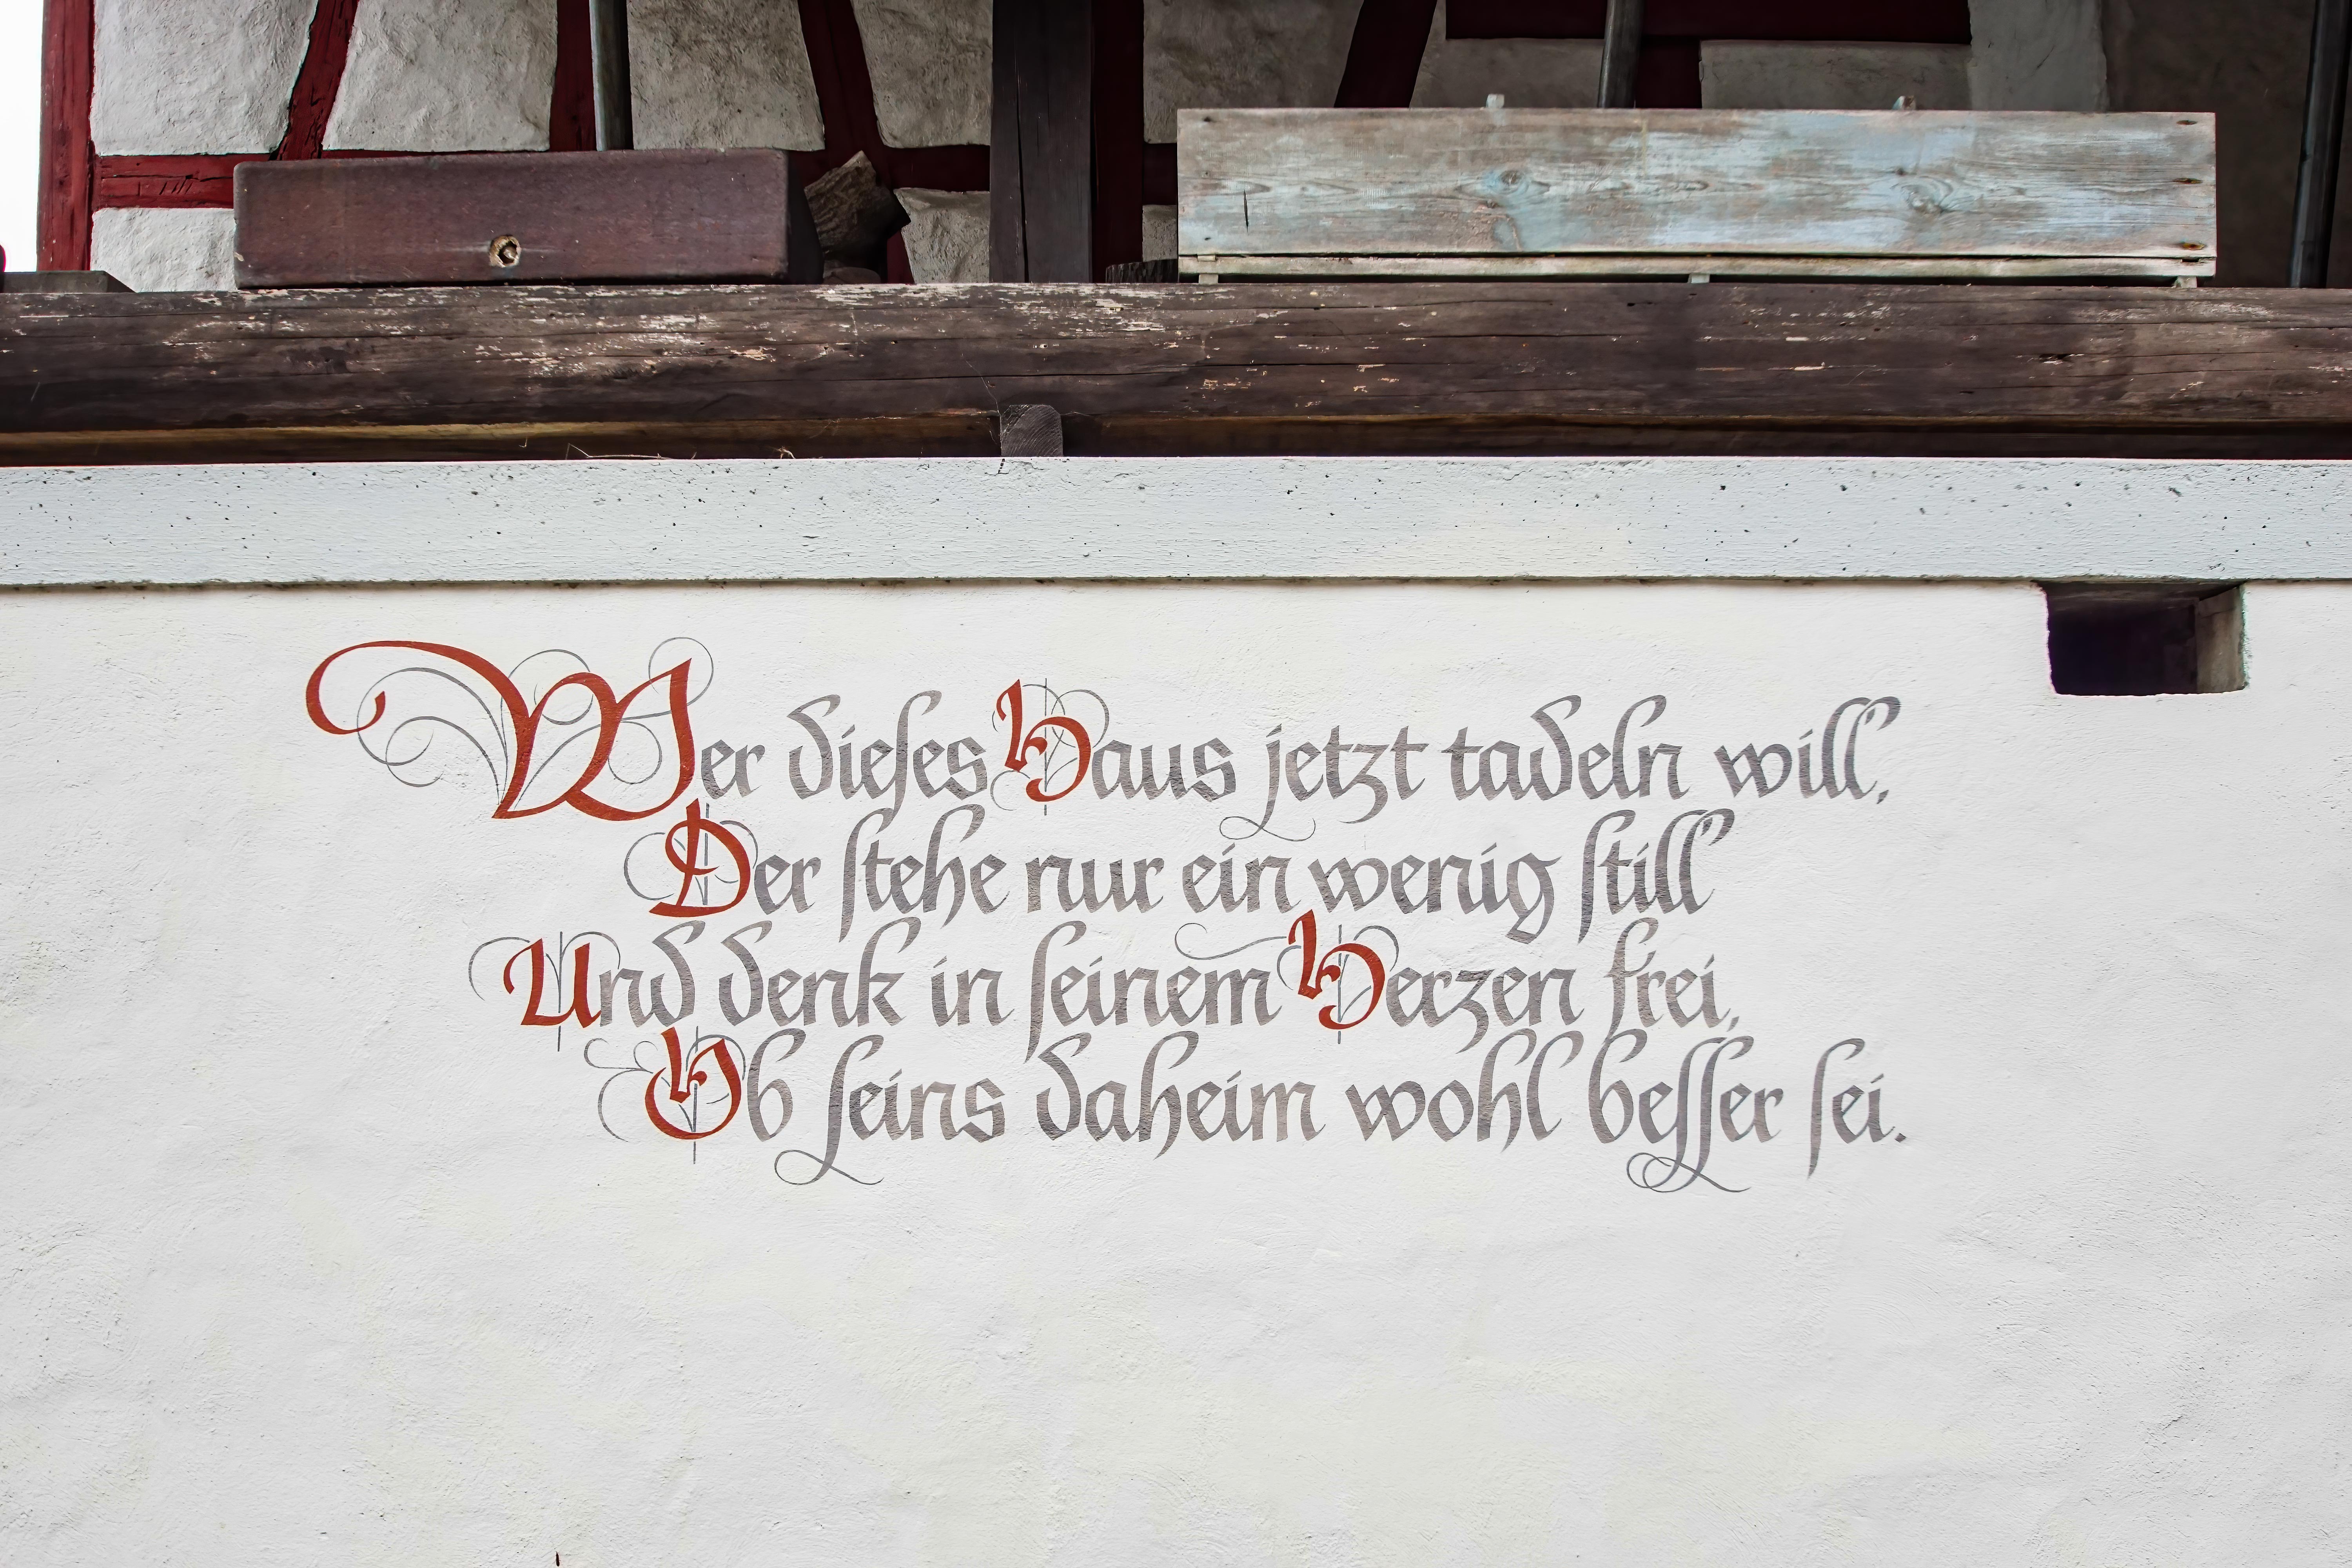 Wer dieſes Haus jetzt tadeln will,
Der ſtehe nur ein wenig ſtill
Und denk in ſeinem Herzen frei,
Ob ſeins daheim wohl beſſer ſei.